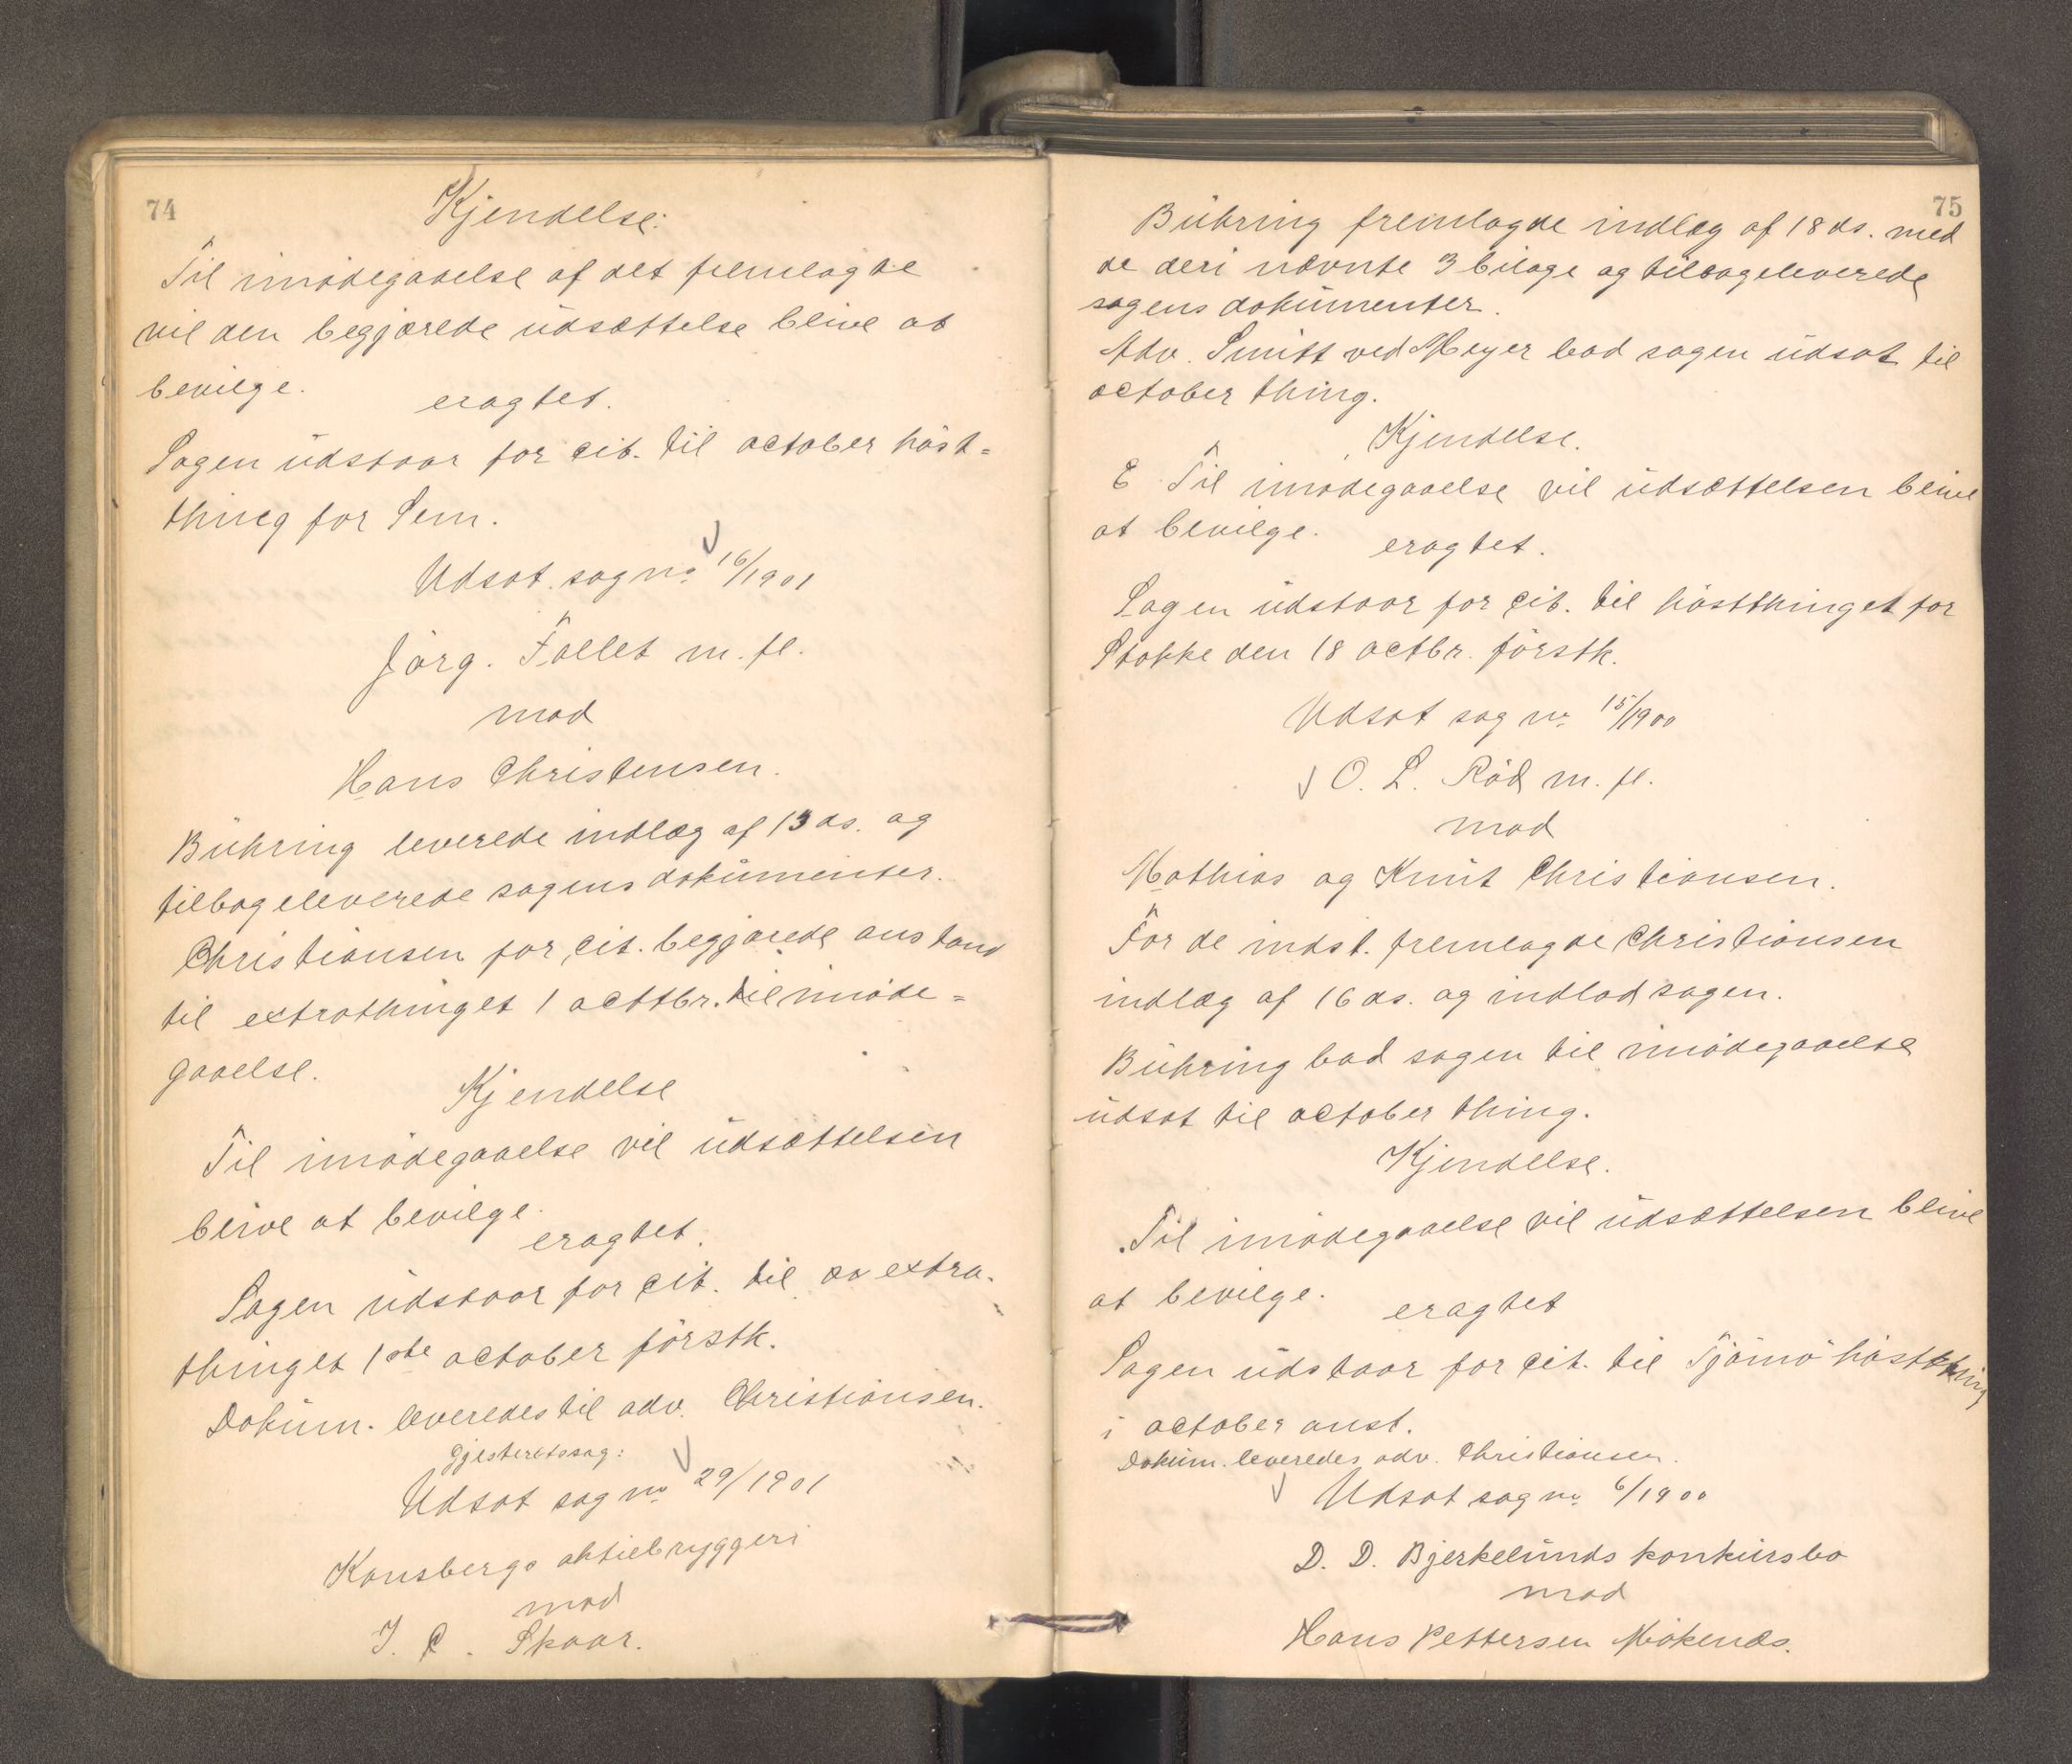 74
Kjendelse:
Til imödegaaelse af det fremlagte
vil den begjærede udsættelse blive at
bevilge.
eragtet.
Sagen udstaar for cit. til october höst-
thing for Sem.
Udsat sag no 16/1901
Jörg. Follet m. fl.
mod
Hans Christensen.
Bühring leverede indlæg af 13 ds. og
tilbageleverede sagens dokumenter.
Christiansen for cit. begjærede anstand
til extrathinget 1 octbr. til imöde-
gaaelse.
Kjendelse
Til imödegaaelse vil udsættelsen
blive at bevilge.
eragtet.
Sagen udstaar for cit. til extra-
thinget 1ste october förstk.
Dokum. leveredes til adv. Christiansen.
Gjesteretssag:
Udsat sag no 29/1901
Konsbergs aktiebryggeri
mod
J. C. Skaar.
75
Bühring fremlagde indlæg af 18 ds. med
de deri nævnte 3 bilage og tilbageleverede
sagens dokumenter.
Adv. Smitt ved Meyer bad sagen udsat til
october thing.
Kjendelse.
Til imödegaaelse vil udsættelsen blive
at bevilge.
eragtet.
Sagen udstaar for cit. til höstthinget for
Stokke den 18 octbr. förstk.
Udsat sag no 15/1900
O. L. Röd m. fl.
mod
Mathias og Knut Christiansen.
For de indst. fremlagde Christiansen
indlæg af 16 ds. og indlod sagen.
Bühring bad sagen til imödegaaelse
udsat til october thing.
Kjendelse.
Til imödegaaelse vil udsættelsen blive
at bevilge.
eragtet
Sagen udstaar for cit. til Tjömö höstthing
i october anst.
Dokum. leveredes adv. Christiansen.
Udsat sag no 6/1900
D. D. Bjerkelunds konkursbo
mod
Hans Pettersen